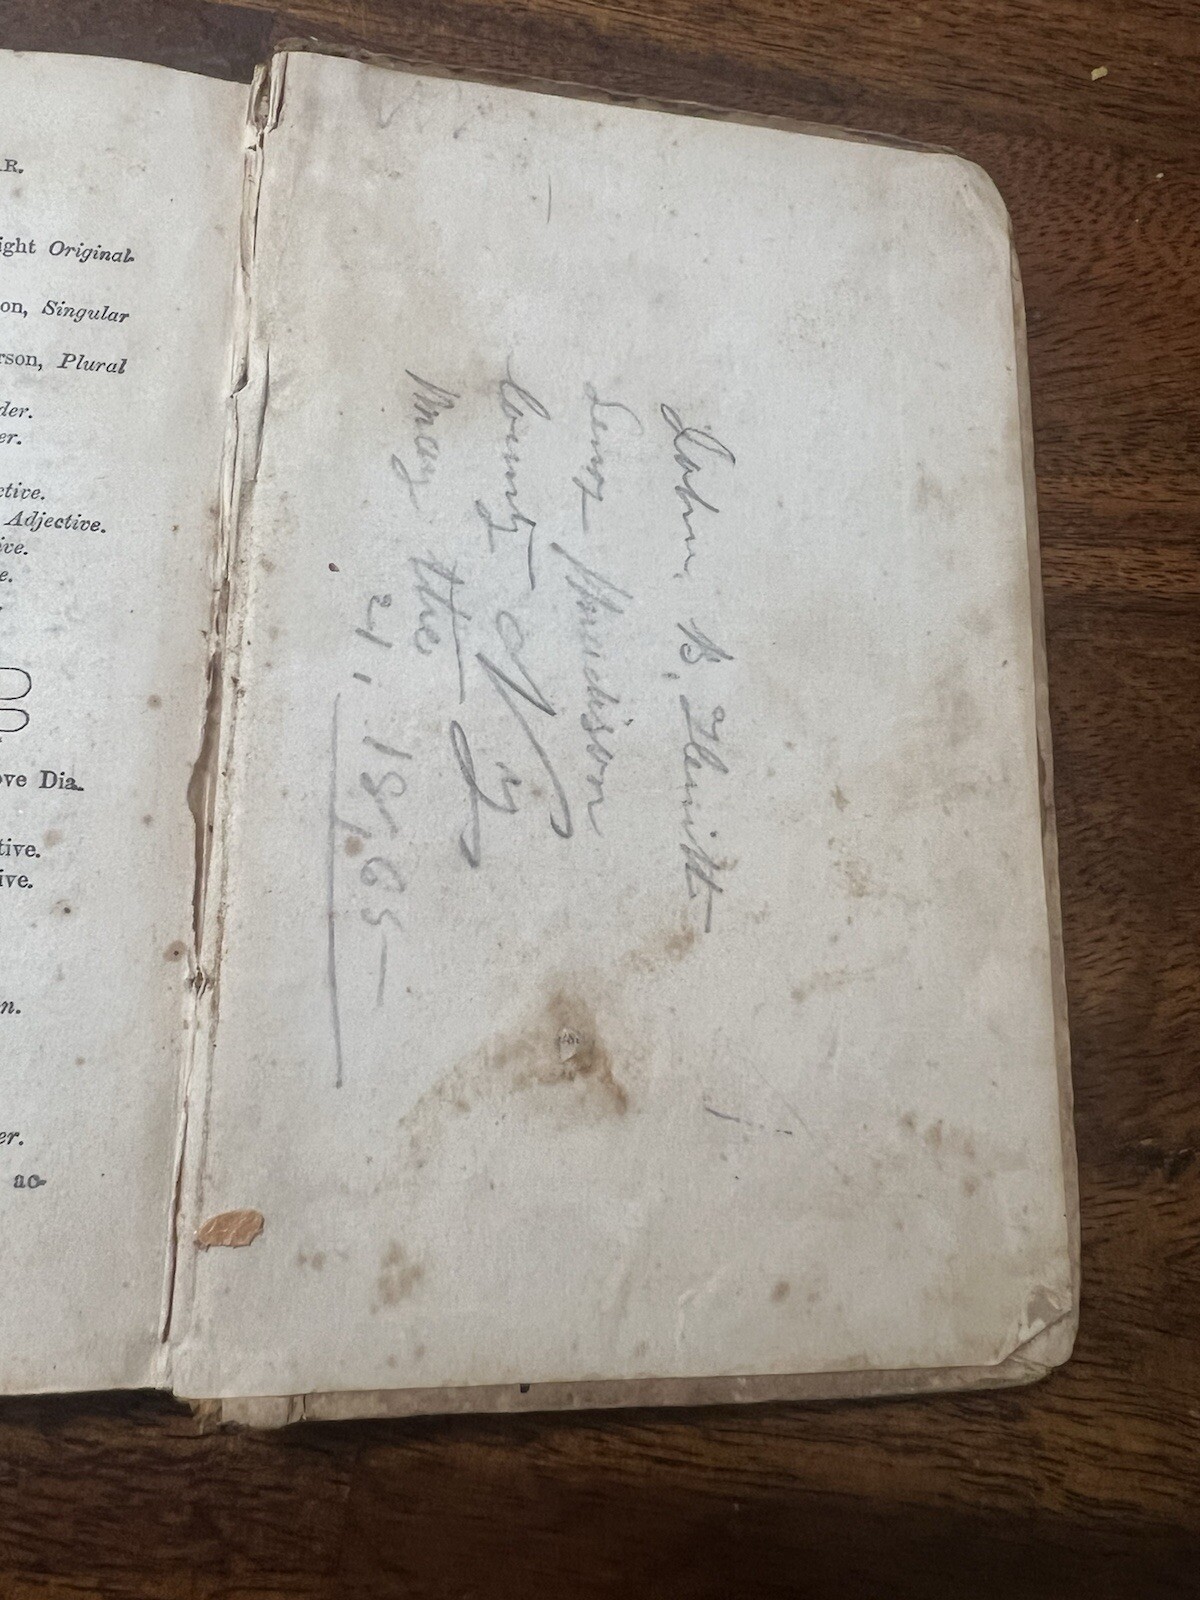 R.
ight Original.
on, Singular
rson, Plural
der.
er.
ctive.
Adjective.
ive.
e.
ove Dia.
tive.
ive.
n.
er.
ac-
John. B,
Madison
County
N, Y
May the
21, 18,65